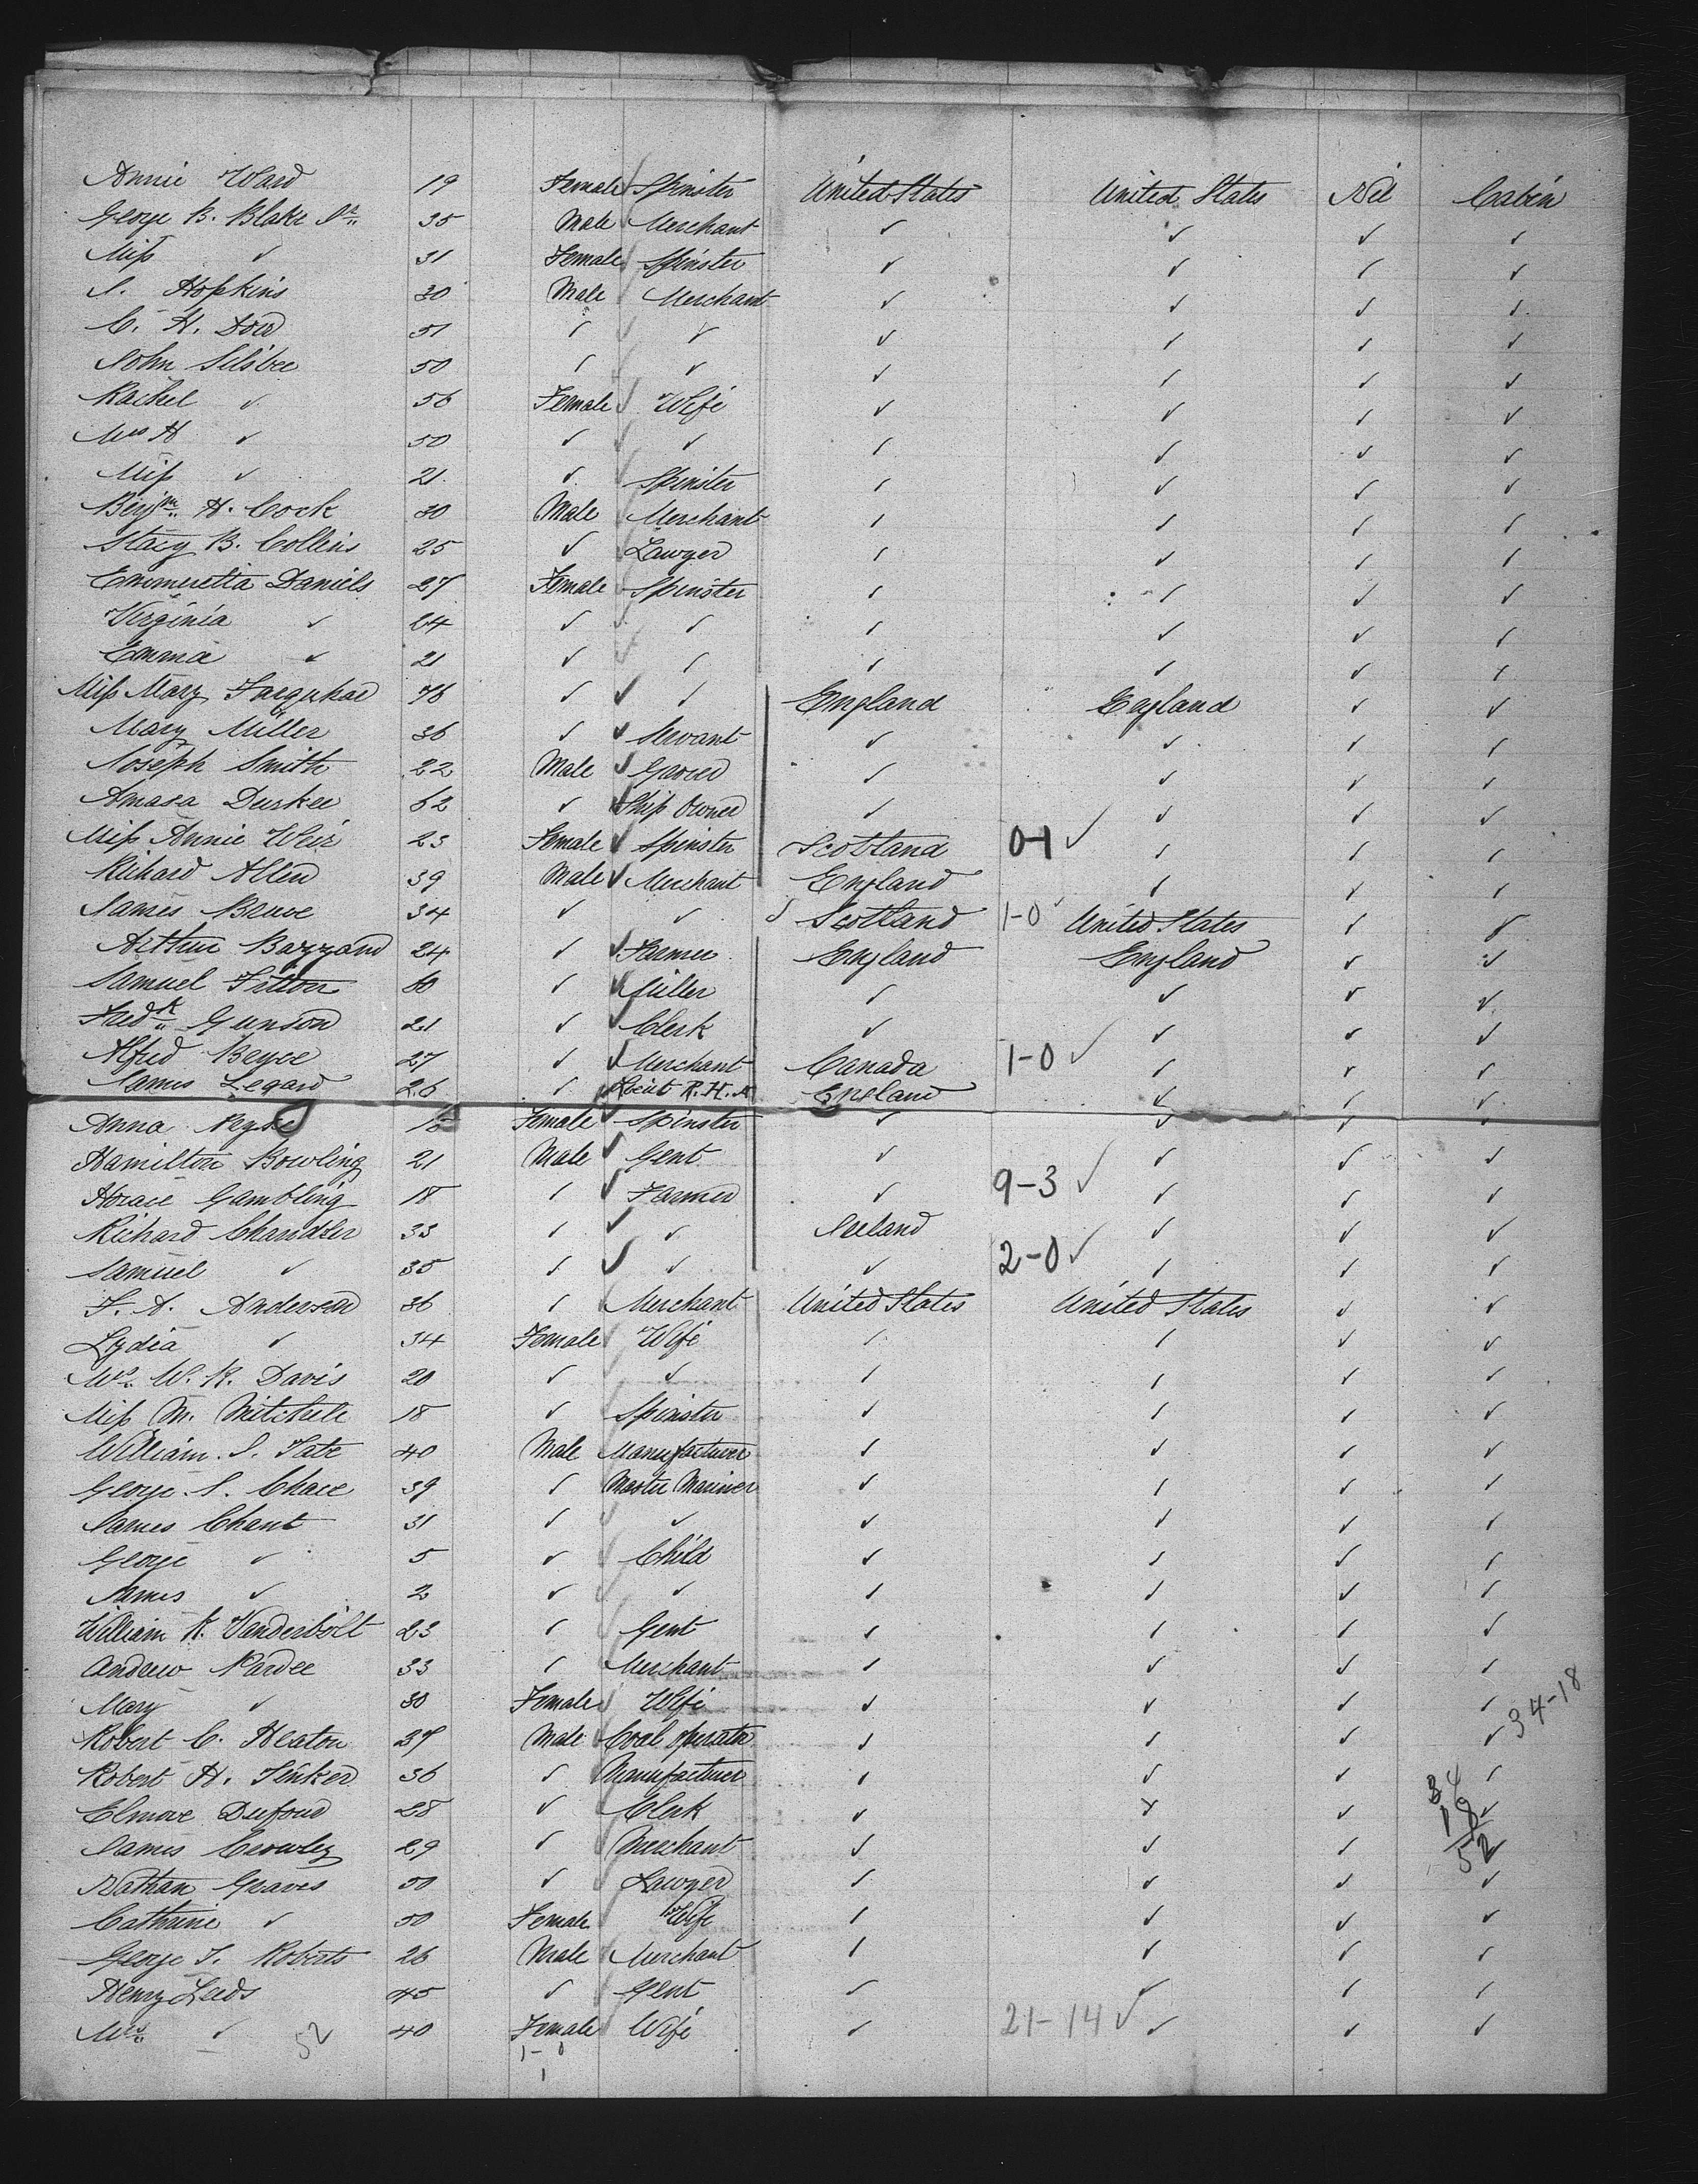 Annie Ward 19 Female Spinster United States United States Nil Cabin
George B. Blake Jr. 35 Male Merchant ✓ ✓ ✓ ✓
Miss ✓ 31 Female Spinster ✓ ✓ ✓ ✓
S. Hopkins 30 Male Merchant ✓ ✓ ✓ ✓
C. H. Dow 51 ✓ ✓ ✓ ✓ ✓ ✓
John Silsbee 50 ✓ ✓ ✓ ✓ ✓ ✓
Rachel ✓ 56 Female Wife ✓ ✓ ✓ ✓
Mrs H ✓ 50 ✓ ✓ ✓ ✓ ✓ ✓
Miss ✓ 21 ✓ Spinster ✓ ✓ ✓ ✓
Benjm. H. Cock 30 Male Merchant ✓ ✓ ✓ ✓
Stacy B. Collins 25 ✓ Lawyer ✓ ✓ ✓ ✓
Emmeretta Daniels 27 Female Spinster ✓ ✓ ✓ ✓
Virginia ✓ 24 ✓ ✓ ✓ ✓ ✓ ✓
Emma ✓ 21 ✓ ✓ ✓ ✓ ✓ ✓
Miss Mary Farquhar 46 ✓ ✓ England England ✓ ✓
Mary Miller 36 ✓ Servant ✓ ✓ ✓ ✓
Joseph Smith 22 Male ✓ ✓ ✓ ✓
Amasa Durkee 62 ✓ Ship Owner ✓ ✓ ✓ ✓
Miss Annie Weir 23 Female Spinster Scotland 0-1 ✓ ✓ ✓ ✓
Richard Allen 39 Male Merchant England ✓ ✓ ✓
James Bruce 34 ✓ ✓ Scotland 1-0 ✓ United States ✓ ✓
Arthur Bazzard 24 ✓ Farmer England England ✓ ✓
Samuel Fitton 60 ✓ Miller ✓ ✓ ✓ ✓
Fredk Gunson 21 ✓ Clerk ✓ ✓ ✓ ✓
Alfred Beyce 27 ✓ Merchant Canada 1-0 ✓ ✓ ✓ ✓
James Legard 26 ✓ Lieut R.H.A England ✓ ✓ ✓
Anna Female Spinster ✓ ✓ ✓ ✓
Hamilton Bowling 21 Male Gent ✓ ✓ ✓ ✓
Horace Gambling 18 ✓ Farmer ✓ 9-3 ✓ ✓ ✓ ✓
Richard Chandler 33 ✓ ✓ Ireland ✓ ✓ ✓
Samuel ✓ 35 ✓ ✓ ✓ 2-0 ✓ ✓ ✓ ✓
F. A. Anderson 36 ✓ Merchant United States United States ✓ ✓
Lydia ✓ 34 Female Wife ✓ ✓ ✓ ✓
Mrs. W. R. Davis 20 ✓ ✓ ✓ ✓ ✓ ✓
Miss M. Mitchell 18 ✓ Spinster ✓ ✓ ✓ ✓
William S. Tate 40 Male Manufacturer ✓ ✓ ✓ ✓
George S. Chace 39 ✓ Master Mariner ✓ ✓ ✓ ✓
James Chant 31 ✓ ✓ ✓ ✓ ✓ ✓
George ✓ 5 ✓ Child ✓ ✓ ✓ ✓
James ✓ 2 ✓ ✓ ✓ ✓ ✓ ✓
William K. Vanderbilt 23 ✓ Gent ✓ ✓ ✓ ✓
Andrew Pardee 33 ✓ Merchant ✓ ✓ ✓ ✓
Mary ✓ 30 Female Wife ✓ ✓ ✓ ✓ 34-18
Robert C. Heaton 37 Male Coal operator ✓ ✓ ✓ ✓
Robert H. Tinker 36 ✓ Manufacturer ✓ ✓ ✓ ✓ 34
Elmore Dufour 28 ✓ Clerk ✓ ✓ ✓ ✓ 18
James Crowley 29 ✓ Merchant ✓ ✓ ✓ 52
Nathan Graves 50 ✓ Lawyer ✓ ✓ ✓ ✓
Cathrine ✓ 50 Female Wife ✓ ✓ ✓ ✓
George T. Roberts 26 Male Merchant ✓ ✓ ✓ ✓
Henry Leeds 45 ✓ Gent ✓ ✓ ✓ ✓
Mrs. ✓ 52 40 Female Wife ✓ 21-14 ✓ ✓ ✓ ✓
1-0
1